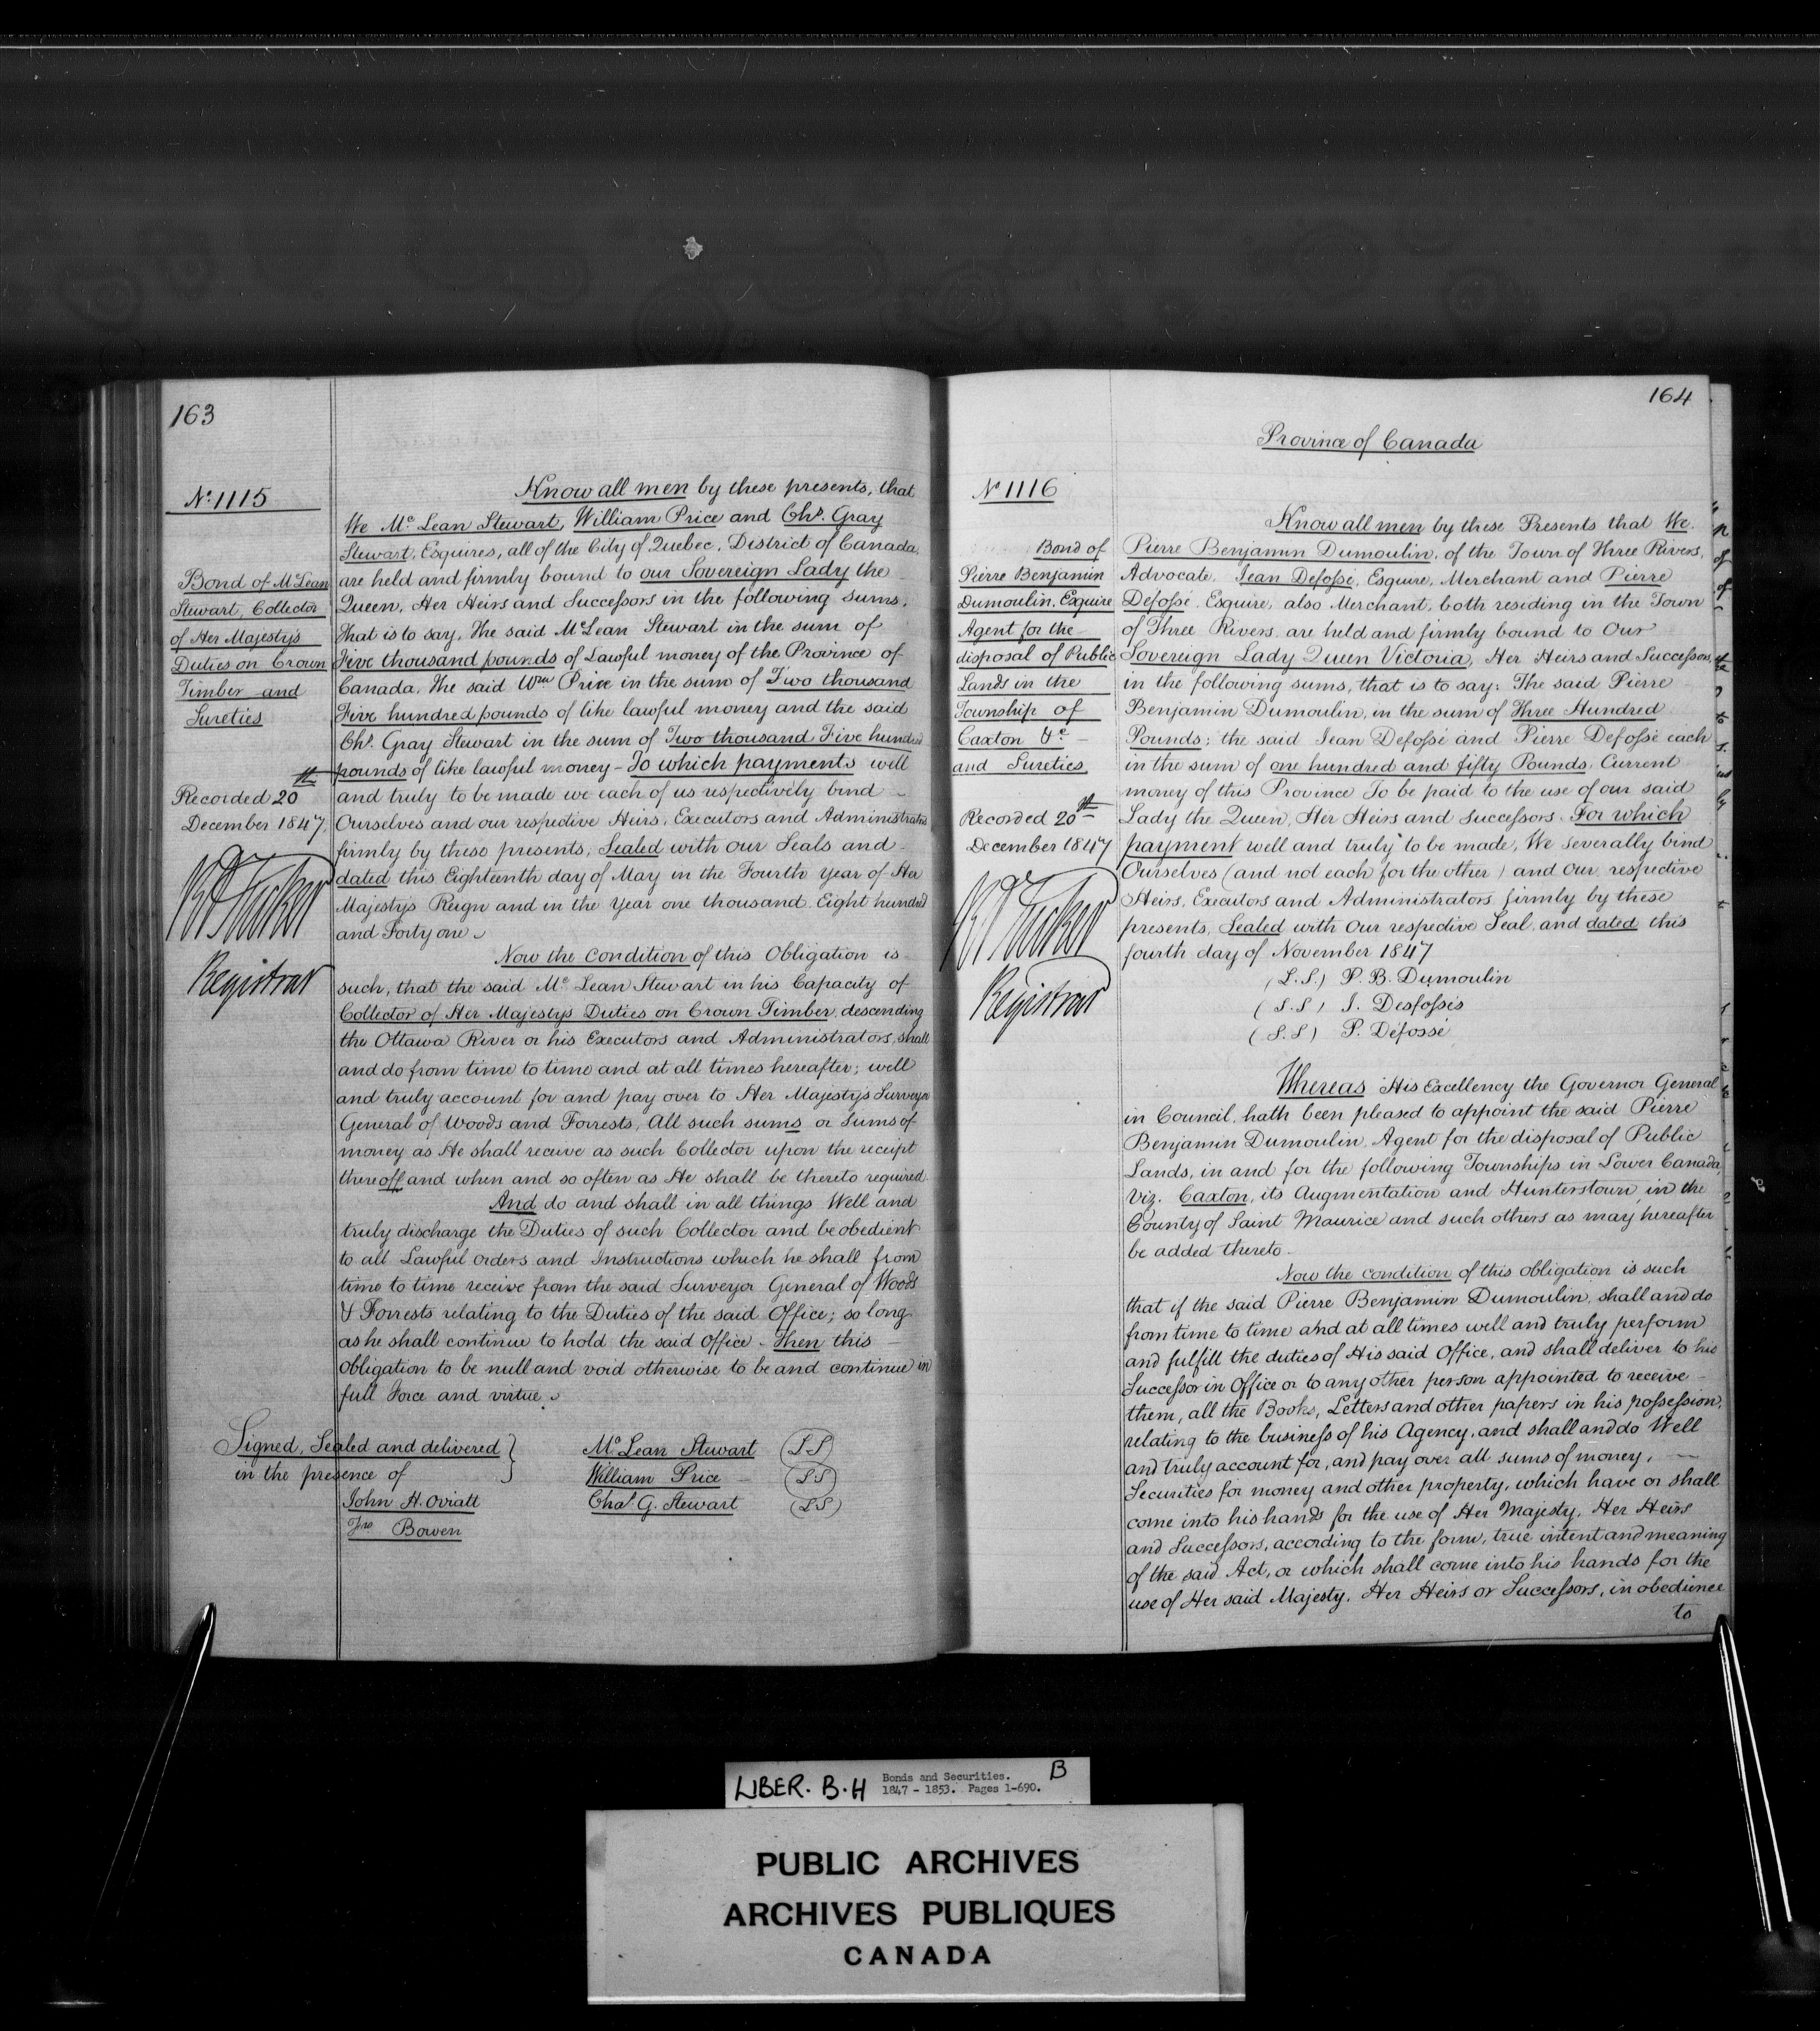 163
Nº 1115
Bond of McLean
Stewart, Collector
of Her Majestys
Duties on Crown
Timber and
Sureties
Recorded 20th
December 1847,
Registrar
Know all men by these presents, that
We Mc Lean Stewart, William Price and Chs. Gray
Stewart, Esquires, all of the City of Quebec, District of Canada,
are held and firmly bound to our Sovereign Lady the
Queen, Her Heirs and Successors in the following sums,
that is to say, The said McLean Stewart in the sum of
Five thousand pounds of Lawful money of the Province of
Canada, The said Wm Price in the sum of Two thousand
Five hundred pounds of like lawful money and the said
Chs. Gray Stewart in the sum of Two thousand Five hundred
pounds of like lawful money - To which payments well
and truly to be made we each of us respectively bind
Ourselves and our respective Heirs, Executors and Administrators
firmly by these presents; Sealed with our Seals and
dated this Eighteenth day of May in the Fourth year of Her
Majestys Reign and in the Year one thousand Eight hundred
and Forty one
Now the condition of this Obligation is
such, that the said Mc Lean Stewart in his Capacity of
Collector of Her Majestys Duties on Crown Timber, descending
the Ottawa River or his Executors and Administrators, shall
and do from time to time and at all times hereafter; well
and truly account for and pay over to Her Majestys Surveyor
General of Woods and Forrests, All such sums or Sums of
money as He shall receive as such Collector upon the receipt
thereoff and when and so often as He shall be thereto required.
And do and shall in all things Well and
truly discharge the Duties of such Collector and be obedient
to all Lawful orders and Instructions which he shall from
time to time receive from the said Surveyor General of Woods
& Forrests relating to the Duties of the said Office; so long
as he shall continue to hold the said Office - Then this
obligation to be null and void otherwise to be and continue in
full Force and virtue.
Signed, Sealed and delivered }
in the presence of
John H. Oviatt
Jno Bowen
Mc Lean Stewart (LS)
William Price (LS)
Chas. G. Stewart (LS)
164
Province of Canada
Nº 1116
Bond of
Pierre Benjamin
Dumoulin, Esquire
Agent for the
disposal of Public
Lands in the
Township of
Caxton &c
and Sureties
Recorded 20th
December 1847
Registrar
Know all men by these Presents that We.
Pierre Benjamin Dumoulin, of the Town of Three Rivers,
Advocate, Jean Defossé, Esquire, Merchant and Pierre
Defossé, Esquire, also Merchant, both residing in the Town
of Three Rivers, are held and firmly bound to Our
Sovereign Lady Queen Victoria, Her Heirs and Successors,
in the following sums, that is to say: The said Pierre
Benjamin Dumoulin, in the sum of Three Hundred
Pounds; the said Jean Defossé and Pierre Defossé each
in the sum of one hundred and fifty Pounds, Current
money of this Province To be paid to the use of our said
Lady the Queen, Her Heirs and successors. For which
payment well and truly to be made, We severally bind
Ourselves (and not each for the other) and our respective
Heirs, Executors and Administrators firmly by these
presents, Sealed with our respective Seal, and dated this
fourth day of November 1847
(L.S.) P. B. Dumoulin
(L.S) J. Desfossés
(L.S) P. Défossé
Whereas His Excellency the Governor General
in Council, hath been pleased to appoint the said Pierre
Benjamin Dumoulin, Agent for the disposal of Public
Lands, in and for the following Townships in Lower Canada,
Viz. Caxton, its Augmentation and Hunterstown in the
County of Saint Maurice and such others as may hereafter
be added thereto.
Now the condition of this obligation is such
that if the said Pierre Benjamin Dumoulin, shall and do
from time to time and at all times well and truly perform
and fulfill the duties of His said Office, and shall deliver to his
Successor in Office or to any other person appointed to receive
them, all the Books, Letters and other papers in his possession,
relating to the business of his Agency, and shall and do Well
and truly account for, and pay over all sums of money,
Securities for money and other property, which have or shall
come into his hands for the use of Her Majesty, Her Heirs
and Successors, according to the form, true intent and meaning
of the said Act, or which shall come into his hands for the
use of Her said Majesty, Her Heirs or Successors, in obedience
to
LIBER. B.H Bonds and Securities. B
1847 - 1853. Pages 1-690.
PUBLIC ARCHIVES
ARCHIVES PUBLIQUES
CANADA